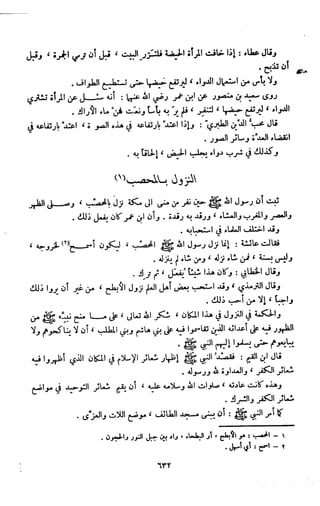 وقال عطاء : إذا خافت المرأة الحيضة فلتزر البيت ، قبل أن ترمي الجمرة ، وقبل
أن تذبح .
ولا بأس من استعمال الدواء ، ليرتفع حيضها حتى تستطيع الطواف .
روى سعيد بن منصور عن ابن عمر رضي الله عنهما : أنه سئل عن المرأة تشتري
الدواء ، ليرتفع حيضها ، لتنفر ، فلم ير به بأسا ونعت لهن ماء الأراك .
قال محب الدين الطبري : وإذا اعتد بارتفاعه في هذه الصورة ، اعتد بارتفاعه في
انقضاء العدة وسائر الصور .
وكذلك في شرب دواء يجلب الحيض ، إلحاقا به .
النزول بالمحصب (١)
ثبت أن رسول الله ﷺ حين نفر من منى الى مكة نزل بالمحصب ، وصلى الظهر
والعصر والمغرب والعشاء ، ورقد به رقدة . وأن ابن عمر كان يفعل ذلك .
وقد اختلف العلماء في استحبابه .
فقالت عائشة : إنما نزل رسول الله ﷺ المحصب ، ليكون أسمح (٢) لخروجه ،
وليس بسنة ، فمن شاء نزله ، ومن شاء لم ينزله .
وقال الخطابي : وكان هذا شيئا يفعل ، ثم ترك .
وقال الترمذي ، وقد استحب بعض أهل العلم نزول الأبطح ، من غير أن يروا ذلك
واجبا ، إلا من أحب ذلك .
والحكمة في النزول في هذا المكان ، شكر الله تعالى ، على ما منح نبيه ﷺ من
الظهور فيه على أعدائه الذين تقاسموا فيه على بني هاشم وبني المطلب ، أن لا يناكحوهم ولا
يبايعوهم حتى يسلموا إليهم النبي ﷺ .
قال ابن القيم : فقصد النبي ﷺ إظهار شعائر الإسلام في المكان الذي أظهروا فيه
شعائر الكفر ، والعداوة لله ورسوله .
وهذه كانت عادته ، صلوات الله وسلامه عليه ، أن يقيم شعائر التوحيد في مواضع
شعائر الكفر والشرك .
كما أمر النبي ﷺ : أن يبنى مسجد الطائف ، موضع اللات والعزى .
١ - المحصب : هو الأبطح ، أو البطحاء ، واد بين جبل النور والحجون .
٢ - اسمح : أي أسهل .
٦٣٢